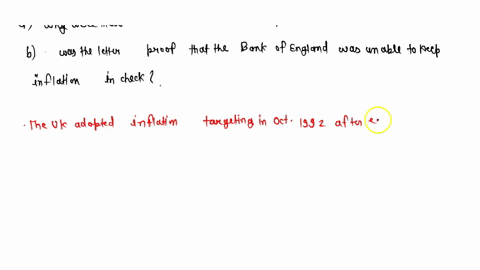 b) was the letter proof that the Bank of England was unable to keep
inflation in check?.
. The UK adopted inflation targeting in Oct. 1992 after e.